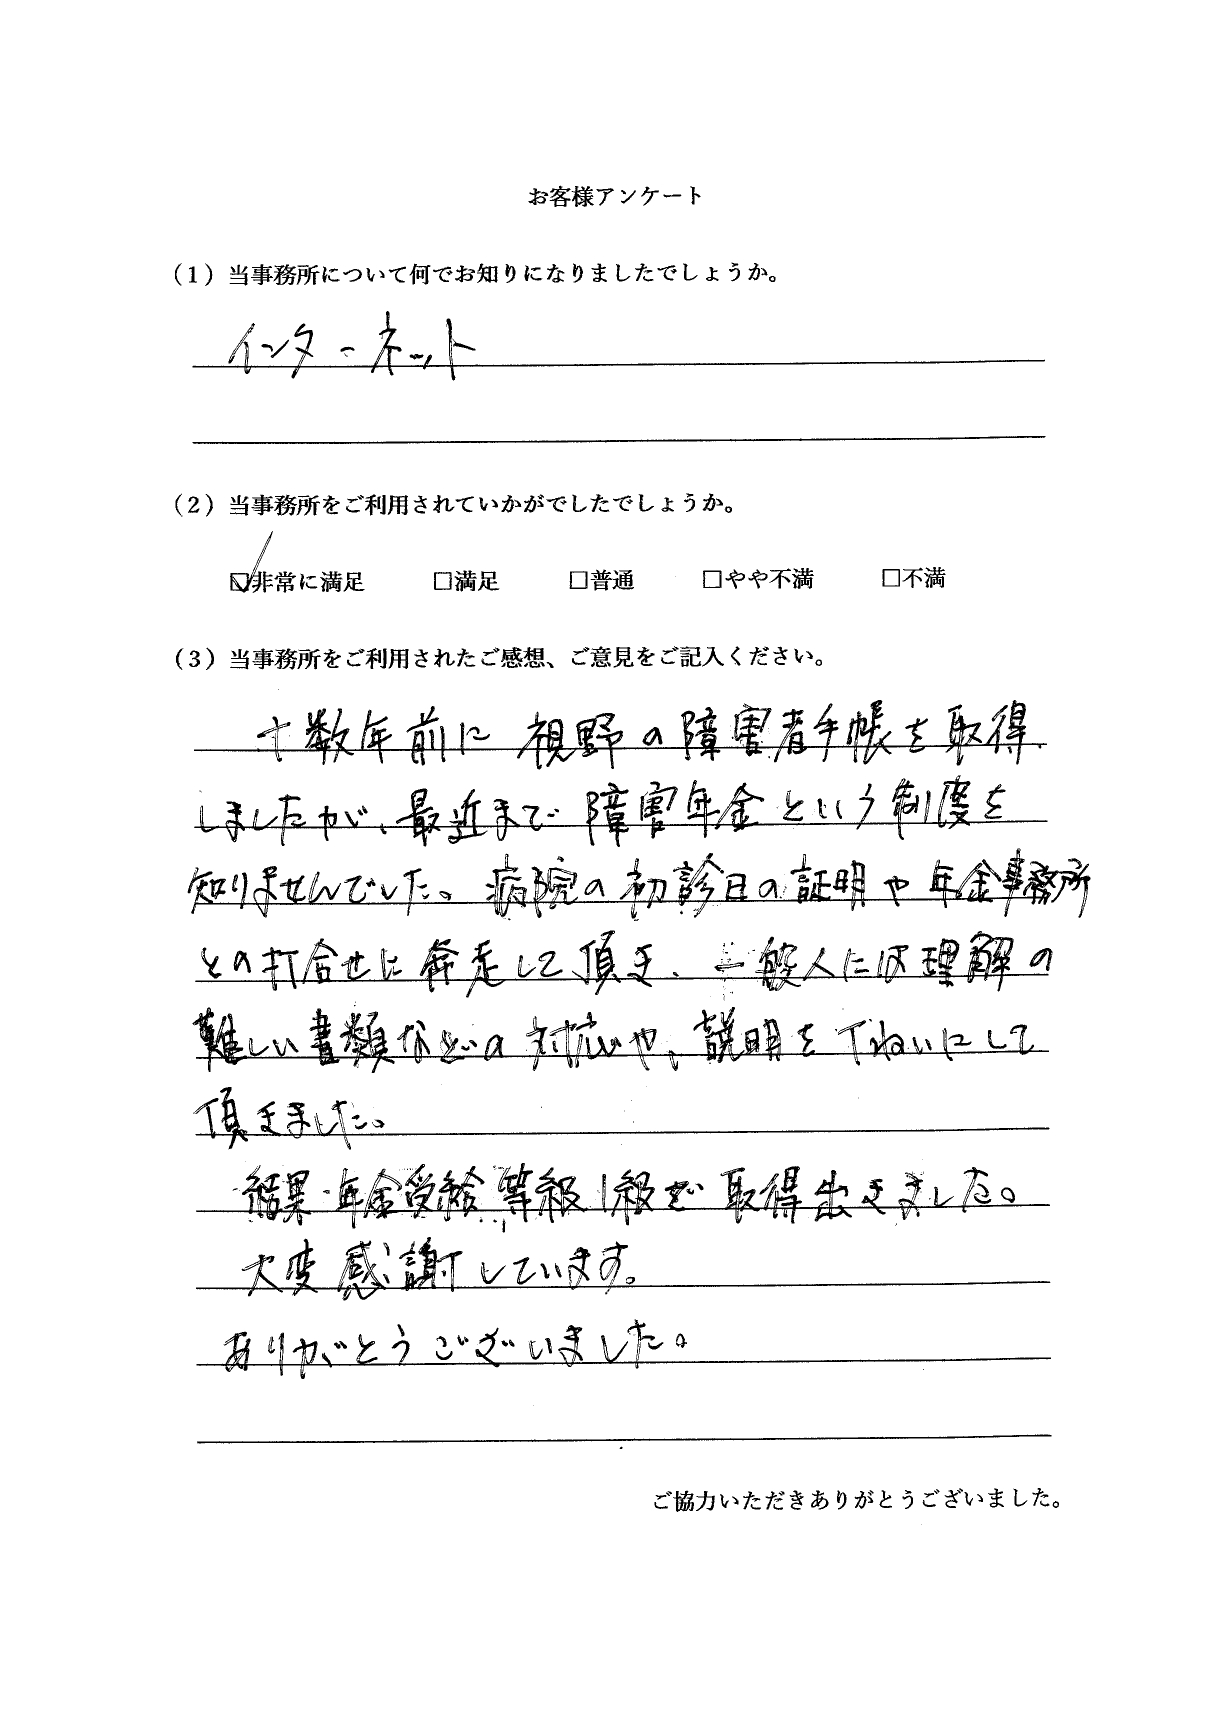 お客様アンケート
（1）当事務所について何でお知りになりましたでしょうか。
インターネット
（2）当事務所をご利用されていかがでしたでしょうか。
☑非常に満足 □満足 □普通 □やや不満 □不満
（3）当事務所をご利用されたご感想、ご意見をご記入ください。
十数年前に視野の障害者手帳を取得
しましたが、最近まで障害年金という制度を
知りませんでした。病院の初診日の証明や年金事務所
との打合せに奔走して頂き、一般人には理解の
難しい書類などの対応や、説明をていねいにして
頂きました。
結果、年金受給等級1級を取得出きました。
大変感謝しています。
ありがとうございました。
ご協力いただきありがとうございました。